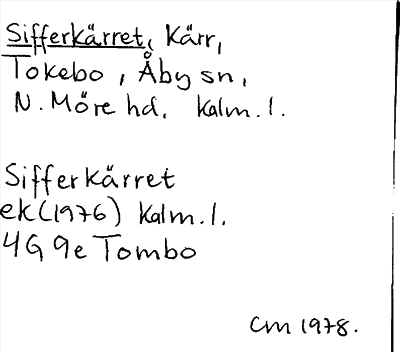 Sifferkärret, Kärr,
Tokebo, Åby sn,
N. Möre hd, Kalm. l.
Sifferkärret
ek (1976) Kalm. l.
4G 9e Tombo
CM 1978.